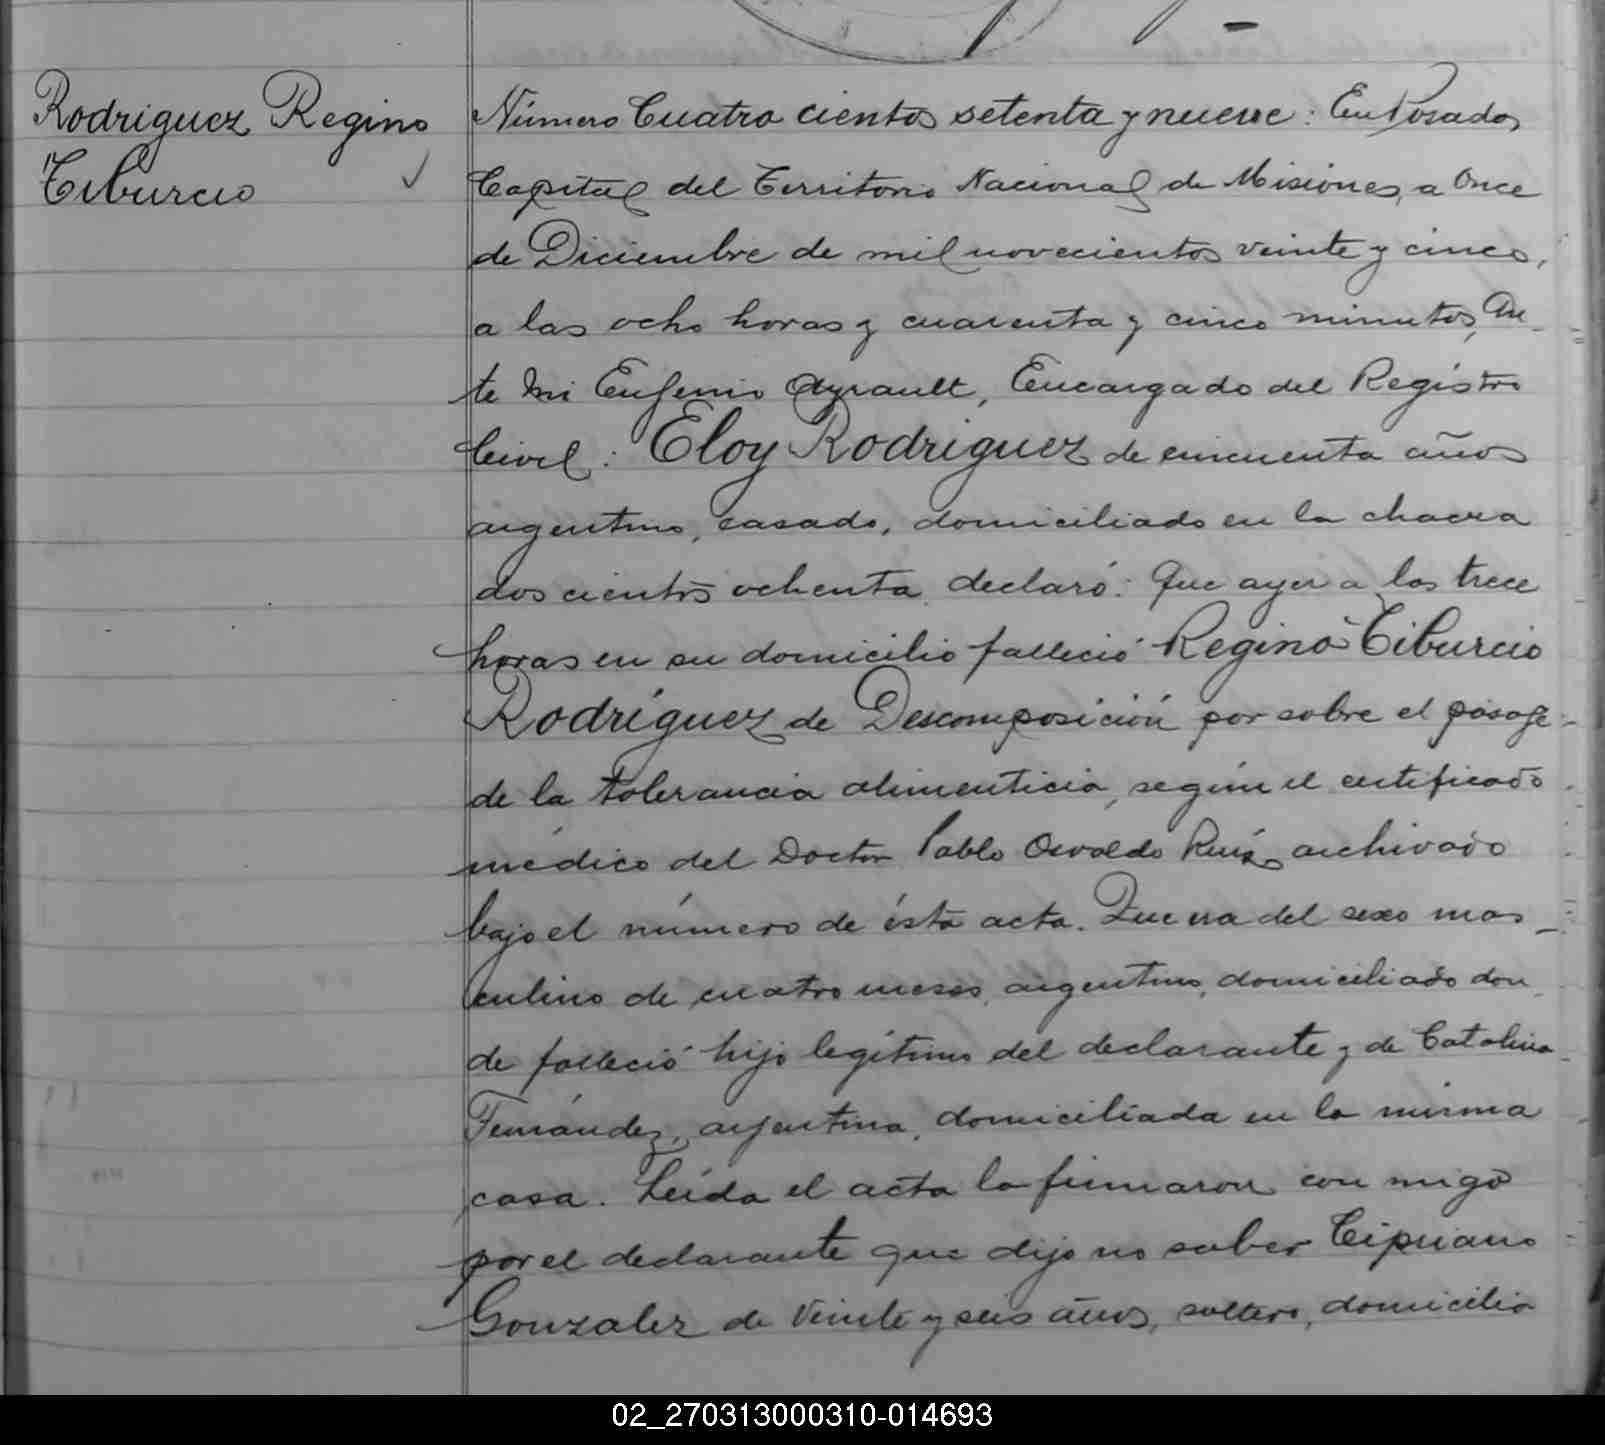 Rodriguez Regino
Tiburcio
Número Cuatro cientos setenta y nueve: En Posadas,
Capital del Territorio Nacional de Misiones, a Once
de Diciembre de mil novecientos veinte y cinco,
a las ocho horas y cuarenta y cinco minutos, An-
te Mi Eugenio Ayrault, Encargado del Registro
Civil: Eloy Rodriguez de cincuenta años
argentino, casado, domiciliado en la chacra
dos cientos ochenta declaró: Que ayer a las trece
horas en su domicilio falleció Regino Tiburcio
Rodriguez de Descomposición por sobre el pasage
de la tolerancia alimenticia, según el certificado
médico del Doctor Pablo Osvaldo Ruiz archivado
bajo el número de ésta acta. Que era del sexo mas-
culino de cuatro meses, argentino, domiciliado don
de falleció hijo legítimo del declarante y de Catalina
Fernández, argentina, domiciliada en la misma
casa. Leída el acta la firmaron con migo
por el declarante que dijo no saber Cipriano
Gonzalez de Veinte y seis años, soltero, domicilio
02_270313000310-014693